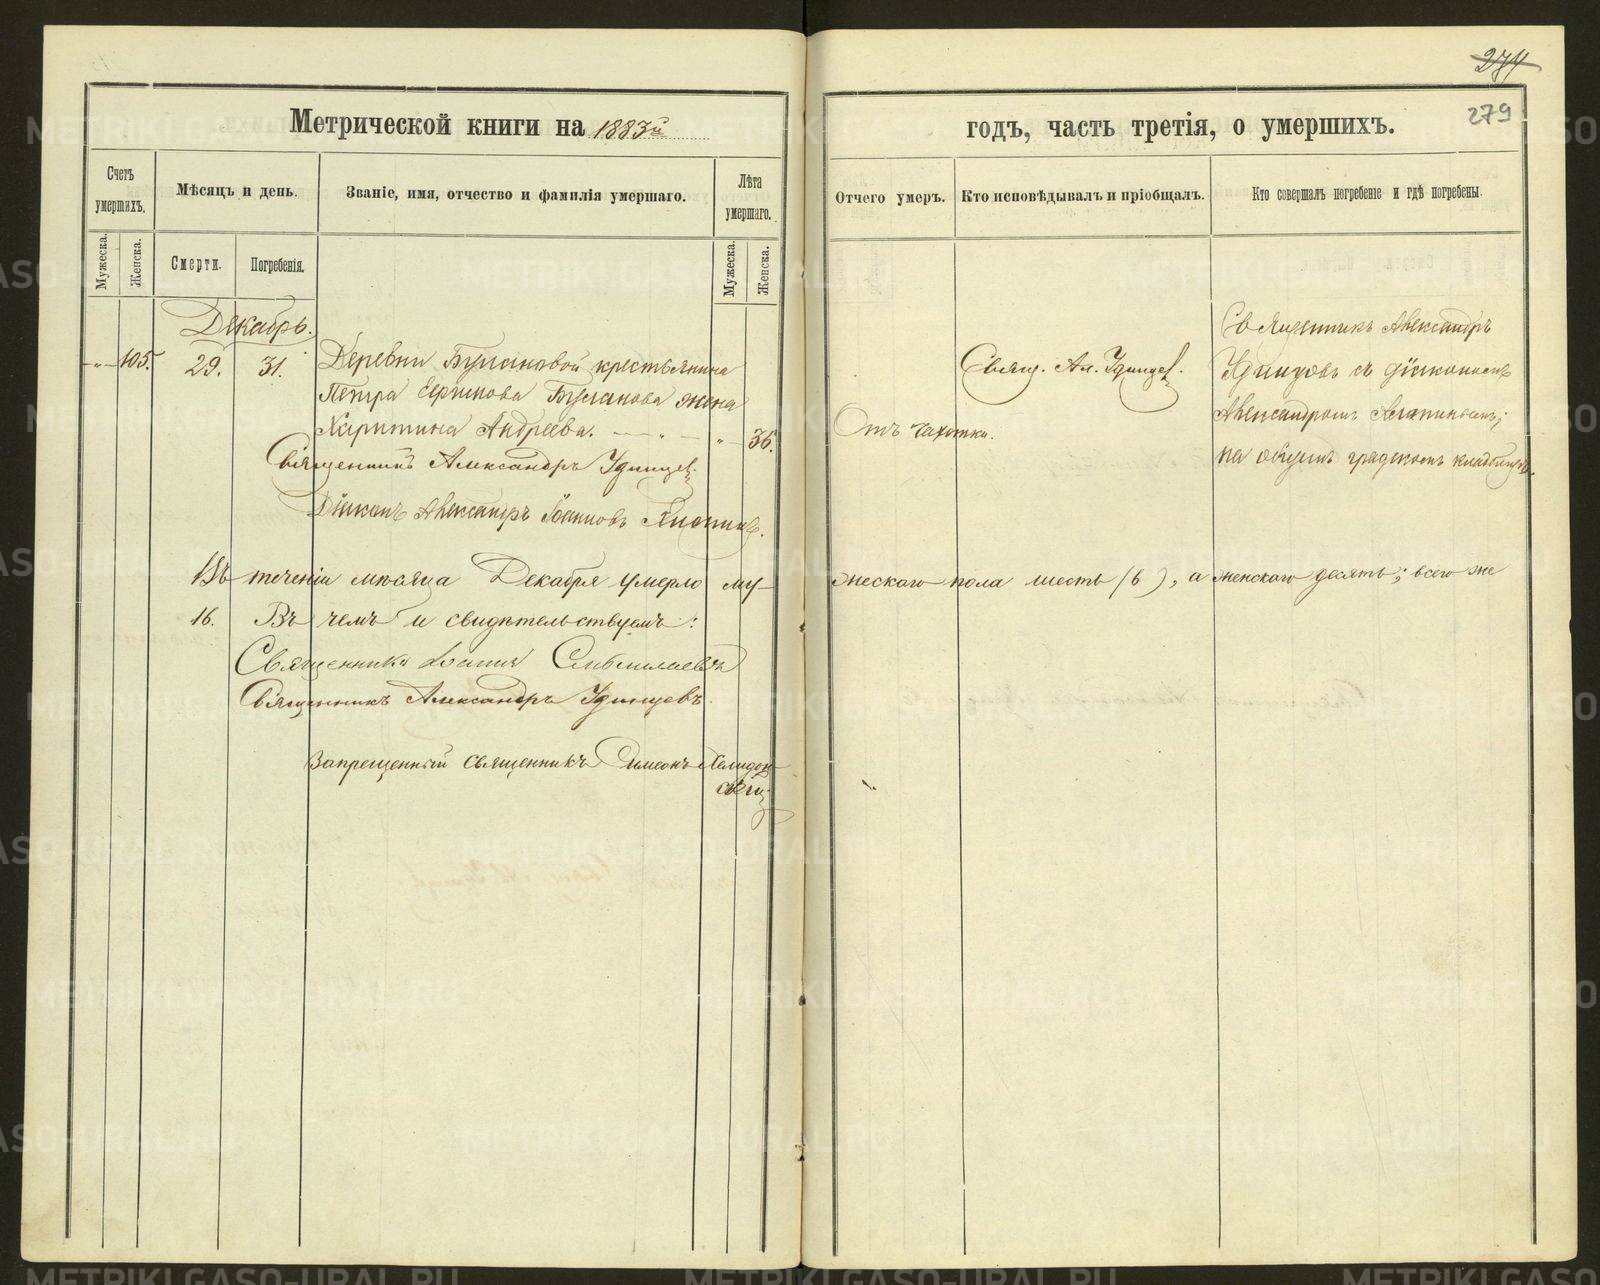 274
279
Метрической книги на 1883й
годъ, часть третія, о умершихъ.
Счетъ умершихъ.
Мѣсяцъ и день.
Званіе, имя, отчество и фамилія умершаго.
Лѣта умершаго.
Отчего умеръ.
Кто исповѣдывалъ и пріобщалъ.
Кто совершалъ погребеніе и гдѣ погребены.
Мужеска.
Женска.
Смерти.
Погребенія.
Мужеска.
Женска.
Декабрь.
105.
29.
31.
Деревни Булановой крестьянина
Петра Ефимова Буланова жена
Харитина Андреева.
36.
Священникъ Александръ Удинцев.
Діаконъ Александръ Іоанновъ
Отъ чахотки.
Свящ. Ал. Удинцев.
Священникъ Александръ
Удинцовъ съ діакономъ
Александромъ
на общемъ градскомъ кладбищѣ.
Въ теченіи мѣсяца Декабря умерло му-
жескаго пола шесть (6), а женскаго десять; всего же
16. Въ чемъ и свидѣтельствуемъ:
Священникъ
Священникъ Александръ Удинцевъ.
Запрещенный священникъ Симеонъ Хелидон-
скій
METRIKI.GASO-URAL.RU